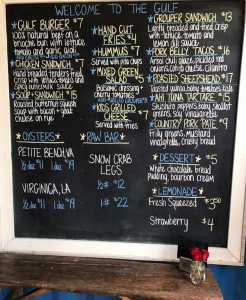 WELCOME TO THE GULF
*GULF BURGER *7
natural 10oz beef on a
brioche bun, with lettuce
tomato and garlic aioli
*CHICKEN SANDWICH *7
Hand breaded tenders fried,
with lettuce tomato and
spicy buttermilk sauce
*SOUP + SANDWICH *15
Roasted butternut squash
soup with bacon + goat
cheese on rye
*HAND CUT
FRIES *4
*HUMMUS *7
Served with pita chips
*MIXED GREEN
SALAD *5
Balsamic dressing
cherry tomatoes
*KIDS GRILLED
CHEESE *7
Served with fries
*GROUPER SANDWICH *13
Lightly breaded and fried crisp
with lettuce tomato and
lemon dill sauce
*PORK BELLY TACOS *16
Arbol chili glaze, pickled red
onions, cotija cheese, cilantro
*ROASTED SHEEPSHEAD *17
Roasted tomatoes
*AHI TUNA TARTARE *15
baby shaker
greens, soy vinaigrette
*COUNTRY PORK PATE *9
Frilly greens, mustard
vinaigrette, crusty bread
*OYSTERS *RAW BAR*
PETITE BENEDIVA
1/2 doz *11 1 doz *19
VIRGINICA, LA
1/2 doz *11 1 doz *19
SNOW CRAB
LEGS
1/2# *12
1# *22
*DESSERT* *5
White chocolate bread
pudding, bourbon cream
*LEMONADE*
Fresh Squeezed *3.50
Strawberry *4